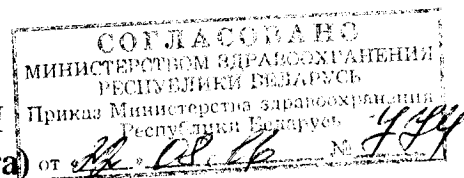 СОГЛАСОВАНО
МИНИСТЕРСТВОМ ЗДРАВООХРАНЕНИЯ
РЕСПУБЛИКИ БЕЛАРУСЬ
Приказ Министерства здравоохранения
Республики Беларусь
а) от «22» 08. 16 №